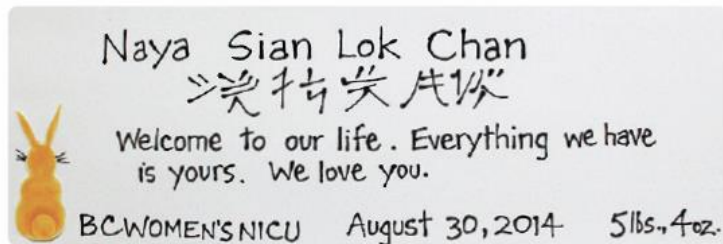 Naya Sian Lok Chan
Welcome to our life. Everything we have
is yours. We love you.
BC WOMEN'S NICU August 30, 2014 5lbs., 4oz.